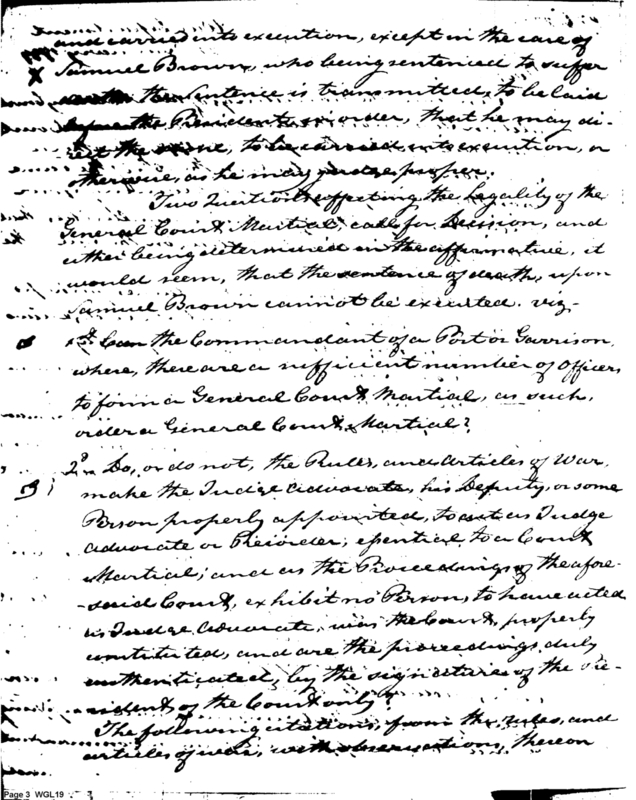 and carried into execution, except in the case of
Samuel Brown, who being sentenced to suffer
death the Sentence is transmitted, to be laid
before the President, order, that he may di-
rect the same, to be carried into execution, or
otherwise, as he may judge proper.
Two Questions effecting the Legality of the
General Court Martial, call for Decision, and
either being determined in the affirmative, it
would seem, that the sentence of death, upon
Samuel Brown cannot be executed. viz-
1st Can the Commandant of a Post or Garrison,
where, there are a sufficient number of Officers
to form a General Court Martial, as such,
order a General Court Martial?
2d Do, or do not, the Rules, and Articles of War,
make the Judge Advocate, his Deputy, or some
Person properly appointed, to act as Judge
Advocate or Recorder, essential to a Court
Martial; and as the Proceedings of the afore-
-said Court, exhibit no Person, to have acted
as Judge Advocate, was the Court, properly
constituted, and are the proceedings, duly
authenticated, by the signatures of the Pre-
sident, of the Court only?
The following citations, from the rules, and
articles of war, with observations, thereon
Page 3 WGL19